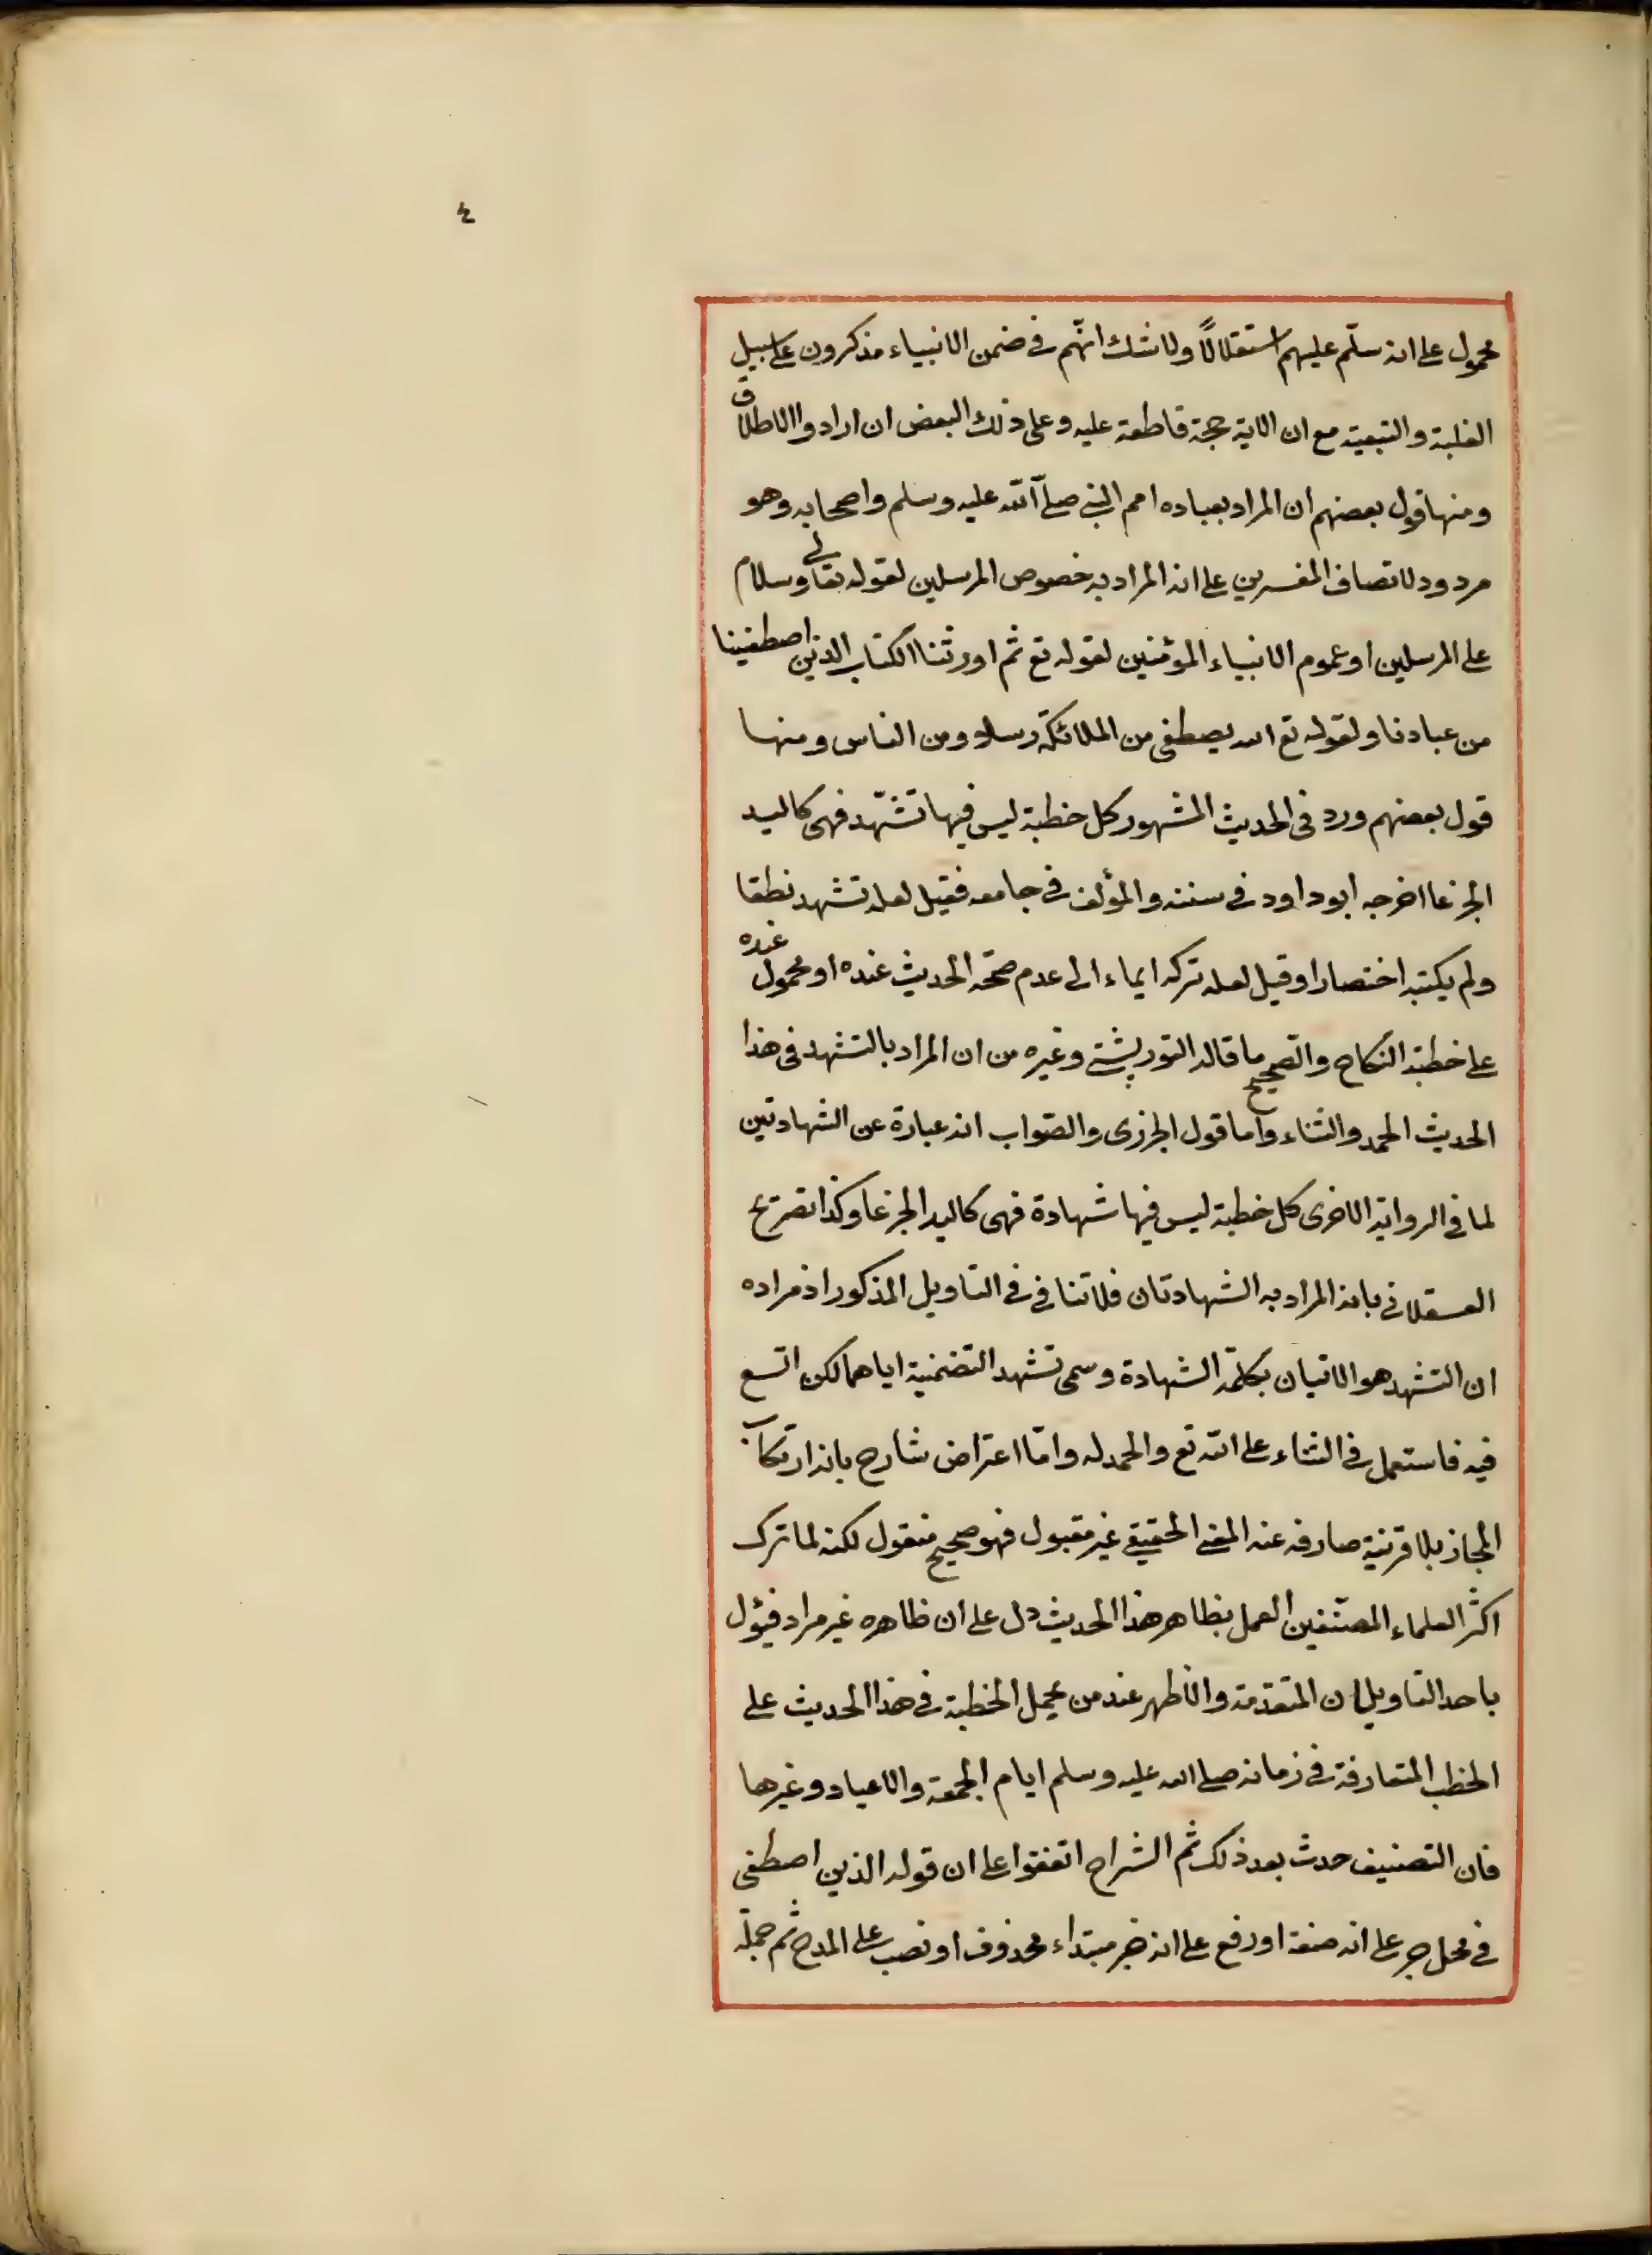 ٤
محمول على انه سلّم عليهم استقلالاً ولا شك انهّم فى ضمن الانبياء مذكرون على سبيل
الغلبة والتبعية مع ان الاية حجة قاطعة عليه وعلى ذلك البعض ان ارادوا الاطلاق
ومنها قول بعضهم ان المراد بعباده امم النبى صلى الله عليه وسلم واصحابه وهو
مردود لاتصاف المفسرين على انه المراد به خصوص المرسلين لقوله تعالى وسلام
على المرسلين او عموم الانبياء المؤمنين لقوله تع ثم اورثنا الكتاب الذين اصطفينا
من عبادنا ولقوله تع الله يصطفى من الملائكة رسلا ومن الناس ومنها
قول بعضهم ورد فى الحديث المشهور كل خطبة ليس فيها تشهّد فهى كاليد
الجزعا اخرجه ابو داود فى سننه والمؤلف فى جامعه فقيل لعله تشهد نطقا
ولم يكتبه اختصارا وقيل لعله تركه ايماء الى عدم صحّة الحديث عنده او محمول عنده
على خطبة النكاح والصحيح ما قاله التورپشتى وغيره من ان المراد بالتشهد فى هذا
الحديث الحمد والثناء واما قول الجزرى والصّواب انه عبارة عن الشهادتين
لما فى الرواية الاخرى كل خطبة ليس فيها شهادة فهى كاليد الجزعا وكذا تصريح
العسقلانى بانه المراد به الشهادتان فلا تنافى فى التاويل المذكور اذ مراده
ان التشهد هو الاتيان بكلمة الشهادة وسمى تشهد التضمنية اياهما لكن اتسع
فيه فاستعمل فى الثناء على الله تع والحمد له وامّا اعتراض شارح بانه ارتكاب
المجاز بلا قرنية صارفه عنه المعنى الحقيقى غير مقبول فهو صحيح منقول لكنه لما ترك
اكثر العلماء المصنّفين العمل بظاهر هذا الحديث دل على ان ظاهره غير مراد فيؤل
باحد التاويلان المتقدمة والاظهر عند من يحمل الخطبة فى هذا الحديث على
الخطب المتعارفة فى زمانه صلى الله عليه وسلم ايام الجمعة والاعياد وغيرها
فان التصنيف حدث بعد ذلك ثم الشراح اتفقوا على ان قوله الذين اصطفى
فى محل جر على انه صفة او رفع على انه خبر مبتداء محذوف او نصب على المدح ثم جملة